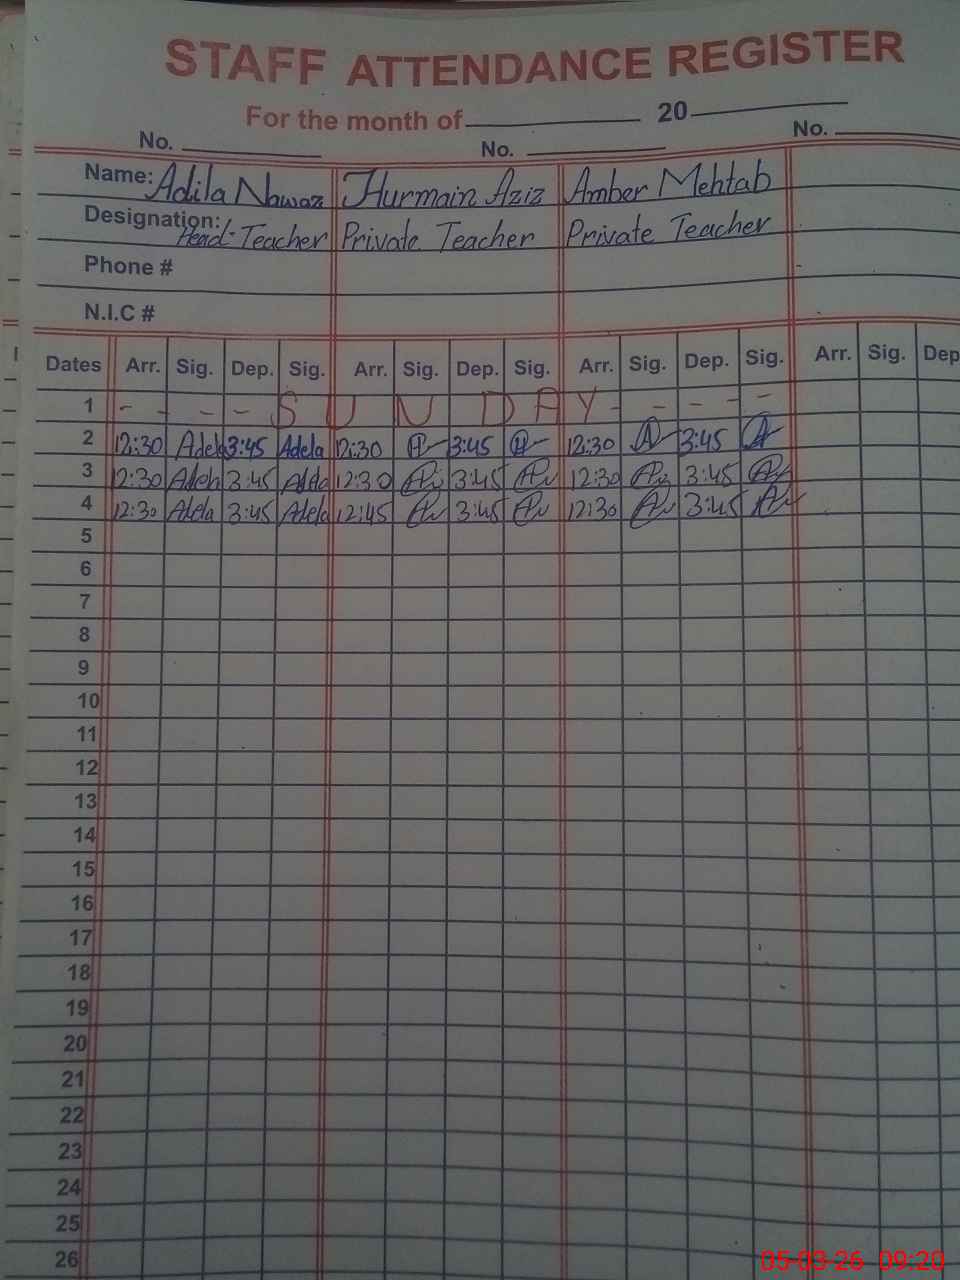 STAFF ATTENDANCE REGISTER
For the month of 20
No. No. No.
Name: Adila Nawaz Hurmain Aziz Amber Mehtab
Designation: Head-Teacher Private Teacher Private Teacher
Phone #
N.I.C #
Dates Arr. Sig. Dep. Sig. Arr. Sig. Dep. Sig. Arr. Sig. Dep. Sig. Arr. Sig. Dep
1 - - - - SUNDAY - - - -
2 12:30 Adela 3:45 Adela 12:30 3:45 12:30 3:45
3 12:30 Adela 3:45 Adela 12:30 3:45 12:30 3:45
4 12:30 Adela 3:45 Adela 12:45 3:45 12:30 3:45
5
6
7
8
9
10
11
12
13
14
15
16
17
18
19
20
21
22
23
24
25
26
05-03-26 09:20